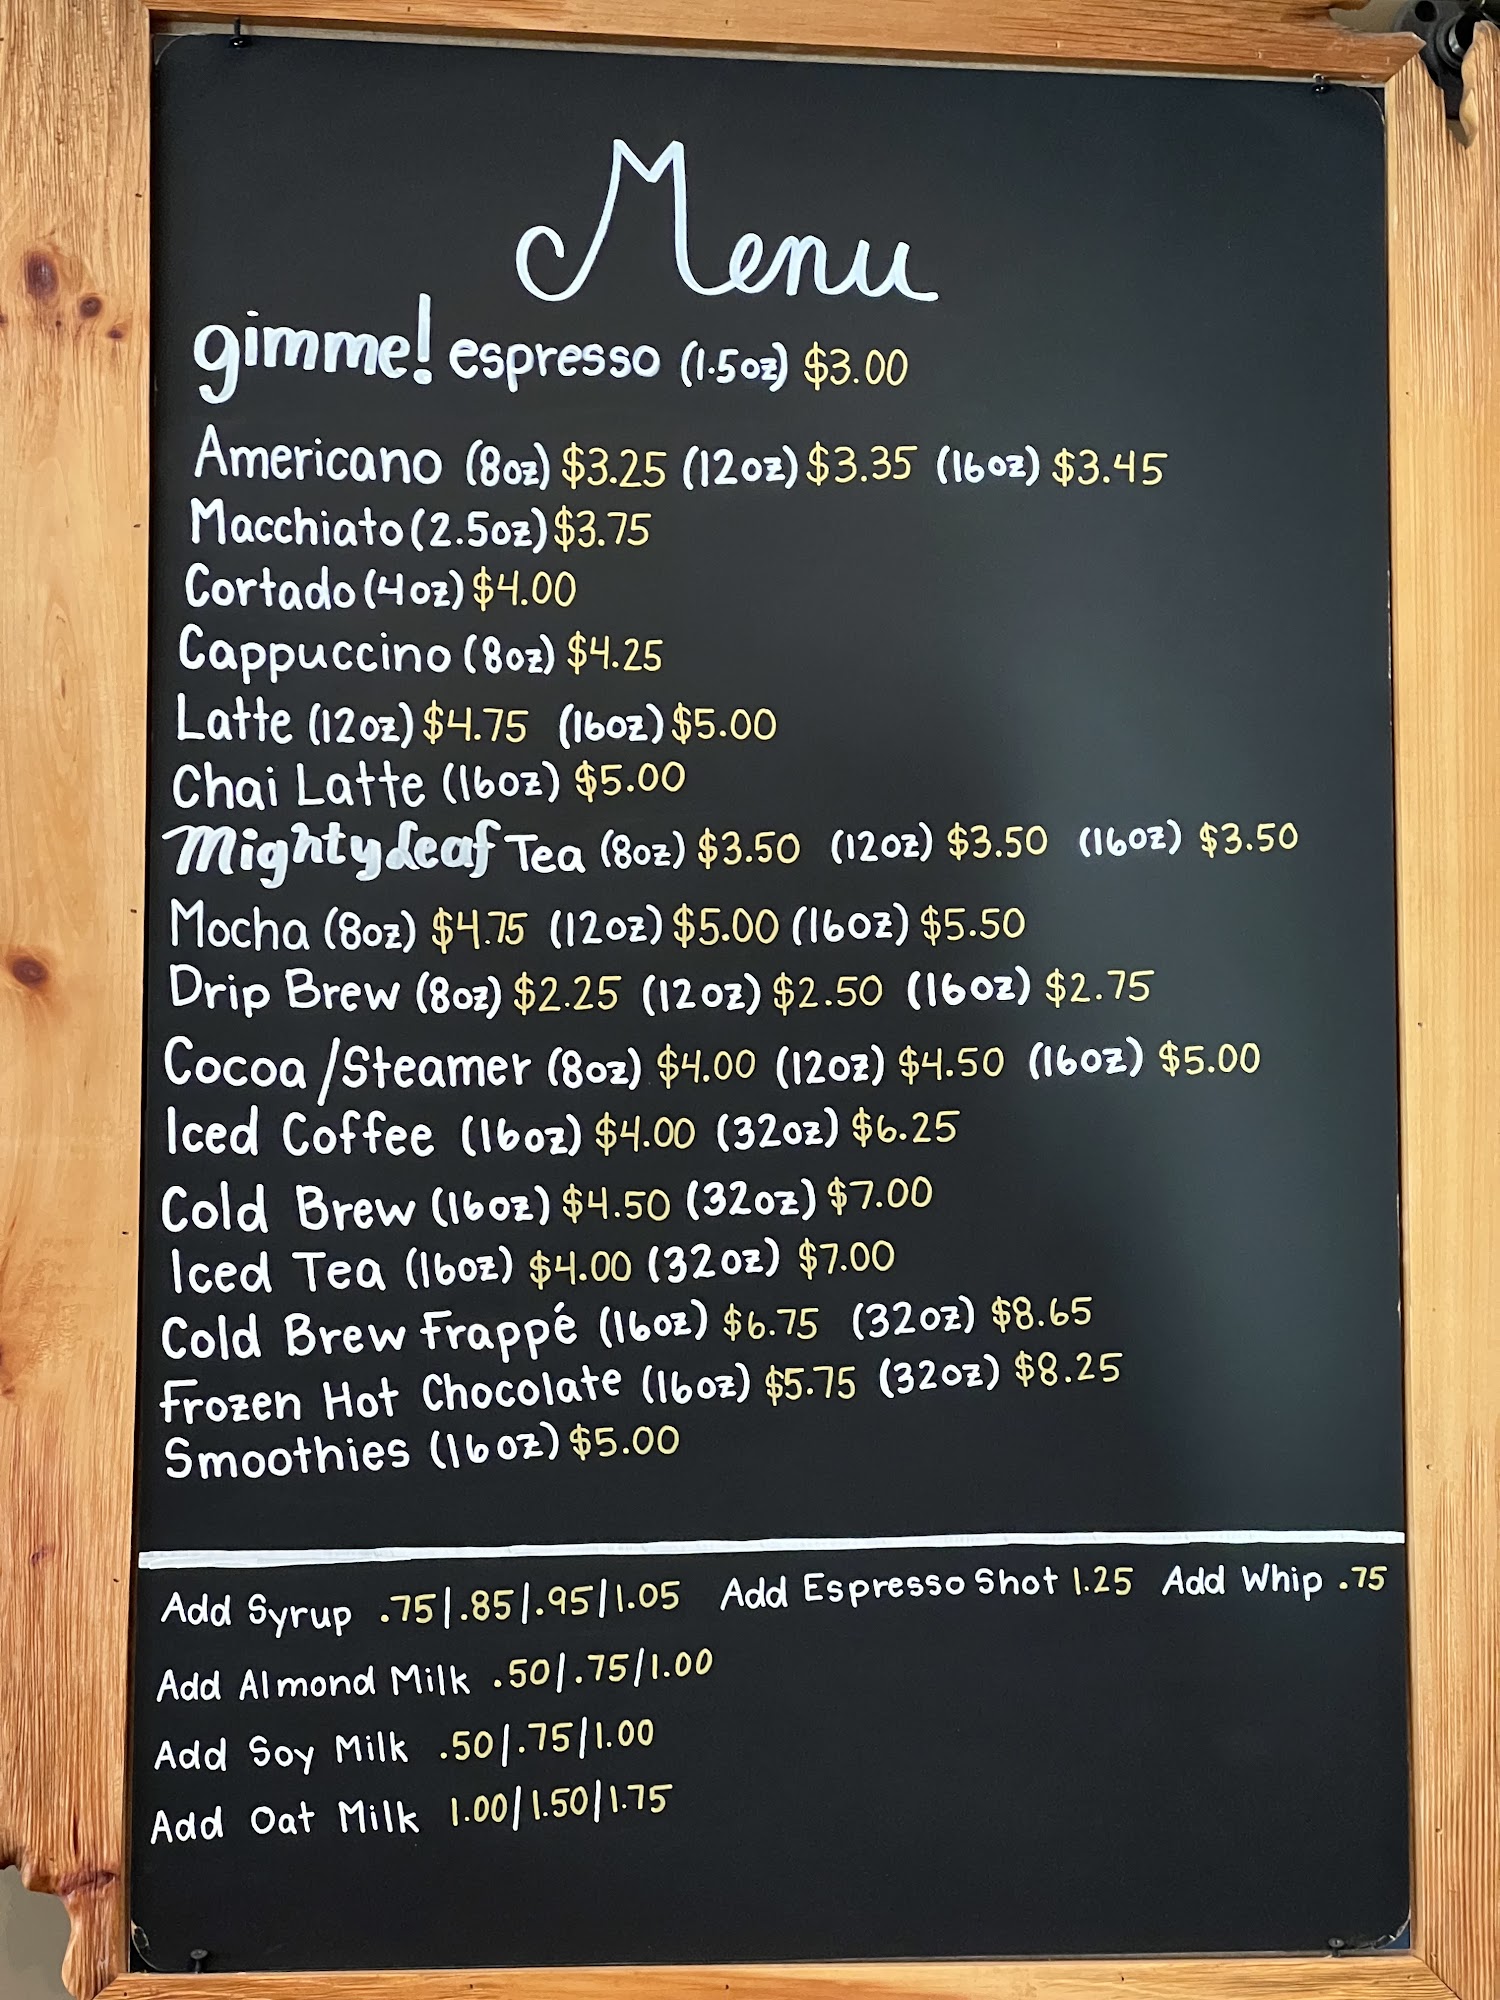 Menu
gimme! espresso (1.5oz) $3.00
Americano (8oz) $3.25 (12oz) $3.35 (16oz) $3.45
Macchiato (2.5oz) $3.75
Cortado (4oz) $4.00
Cappuccino (8oz) $4.25
Latte (12oz) $4.75 (16oz) $5.00
Chai Latte (16oz) $5.00
Mighty Leaf Tea (8oz) $3.50 (12oz) $3.50 (16oz) $3.50
Mocha (8oz) $4.75 (12oz) $5.00 (16oz) $5.50
Drip Brew (8oz) $2.25 (12oz) $2.50 (16oz) $2.75
Cocoa/Steamer (8oz) $4.00 (12oz) $4.50 (16oz) $5.00
Iced Coffee (16oz) $4.00 (32oz) $6.25
Cold Brew (16oz) $4.50 (32oz) $7.00
Iced Tea (16oz) $4.00 (32oz) $7.00
Cold Brew Frappé (16oz) $6.75 (32oz) $8.65
Frozen Hot Chocolate (16oz) $5.75 (32oz) $8.25
Smoothies (16oz) $5.00
Add Syrup .75/.85/.95/1.05 Add Espresso Shot 1.25 Add Whip .75
Add Almond Milk .50/.75/1.00
Add Soy Milk .50/.75/1.00
Add Oat Milk 1.00/1.50/1.75